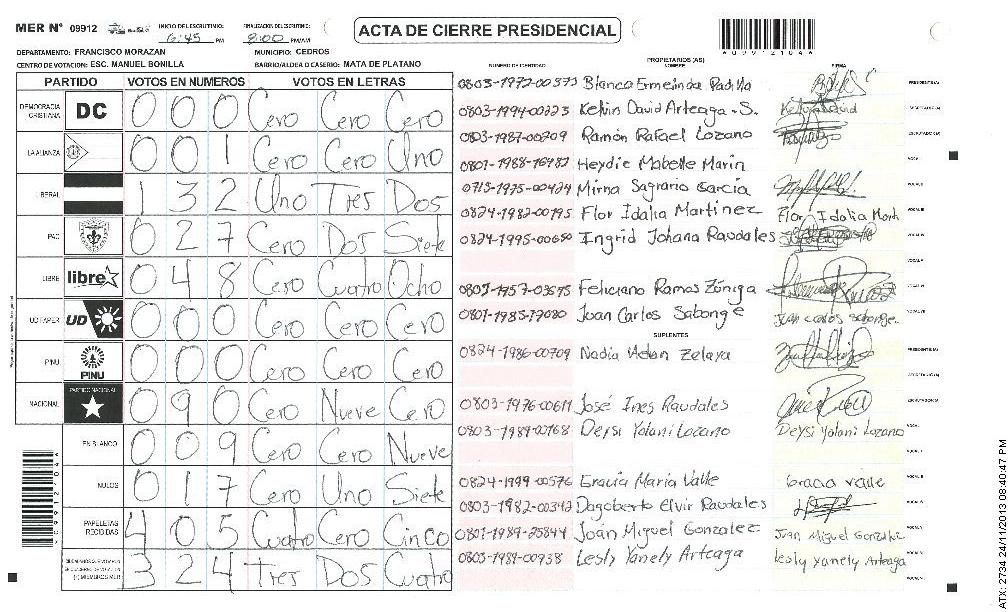 MER N° 09912 INICIO DE ESCRUTINIO: 6:45 PM FINALIZACION DE ESCRUTINIO: 8:00 PM/AM
ACTA DE CIERRE PRESIDENCIAL
*09912104A*
DEPARTAMENTO: FRANCISCO MORAZAN MUNICIPIO: CEDROS
CENTRO DE VOTACION: ESC. MANUEL BONILLA BARRIO/ALDEA O CASERIO: MATA DE PLATANO
PARTIDO VOTOS EN NUMEROS VOTOS EN LETRAS
DEMOCRACIA CRISTIANA DC 0 0 0 Cero Cero Cero
LA ALIANZA 0 0 1 Cero Cero Uno
LIBERAL 1 3 2 Uno Tres Dos
PAC 0 2 7 Cero Dos Siete
LIBRE libre 0 4 8 Cero Cuatro Ocho
UD FAPER UD 0 0 0 Cero Cero Cero
PINU PINU 0 0 0 Cero Cero Cero
NACIONAL PARTIDO NACIONAL 0 9 0 Cero Nueve Cero
EN BLANCO 0 0 9 Cero Cero Nueve
NULOS 0 1 7 Cero Uno Siete
PAPELETAS RECIBIDAS 4 0 5 Cuatro Cero Cinco
(+) MIEMBROS MER 3 2 4 Tres Dos Cuatro
NUMERO DE IDENTIDAD PROPIETARIOS (AS) FIRMA
Blanca Ermeinda Padilla PRESIDENTE(A)
0803-1994-00223 Kelvin David Arteaga-S. SECRETARIO(A)
0803-1987-00209 Ramón Rafael Lozano ESCRUTADOR(A)
Heydie Mabelle Marin VOCAL I
0715-1975-00424 Mirna Sagrario García VOCAL II
0824-1982-00195 Flor Idalia Martinez Flor Idalia Marti VOCAL III
0824-1995-00650 Ingrid Johana Raudales VOCAL IV
Feliciano Ramos Zúniga
0801-1985-17080 Juan Carlos Sabonge Juan Carlos Sabonge
SUPLENTES
0824-1986-00709 Nadia Zelaya PRESIDENTE(A)
SECRETARIO(A)
0803-1976-00611 José Ines Raudales ESCRUTADOR(A)
0803-1989-00168 Deysi Yolani Lozano Deysi Yolani Lozano
0824-1999-00576 Gracia Maria Valle Gracia Valle
0803-1982-00342 Dagoberto Elvir Raudales
0801-1989-25844 Joan Miguel Gonzalez Joan Miguel Gonzalez
0803-1989-00938 Lesly Yanely Arteaga Lesly Yanely Arteaga
ATX: 2734 24/11/2013 08:40:47 PM